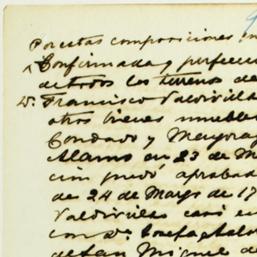 Por estas composiciones en
Confirmada y perfecc
de todos los terrenos de
Dn. Francisco Valdivi
otros bienes mueble
Condado y Mayora
Alamo en 23 de M
ción quedó aprobad
de 24 de Mayo de 17
Valdivi casó e
con Da. Josefa
de San Miguel de